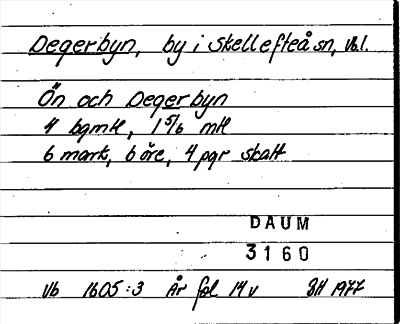 Degerbyn, by i Skellefteå sn, Vb.l.
Ön och Degerbyn
4 bgmk, 1 5/6 mk
6 mark, 6 öre, 4 pgr skatt
DAUM
3160
Vb 1605:3 År fol 14v SH 1977